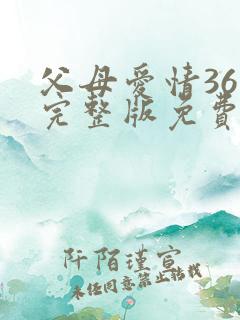 父母爱情36
完整版免费
阡陌瑾宫
未经同意禁止转载